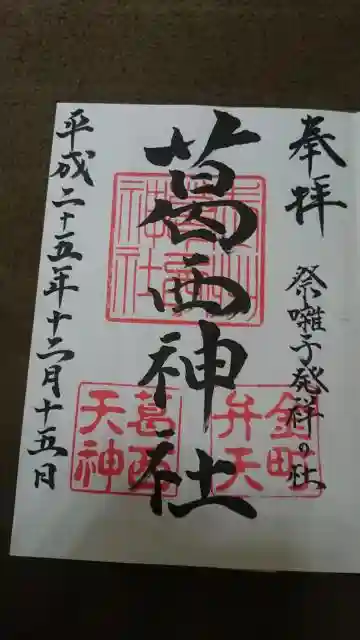 奉拝
祭囃子発祥の社
葛西神社
平成二十五年十二月十五日
金町
弁天
葛西
天神